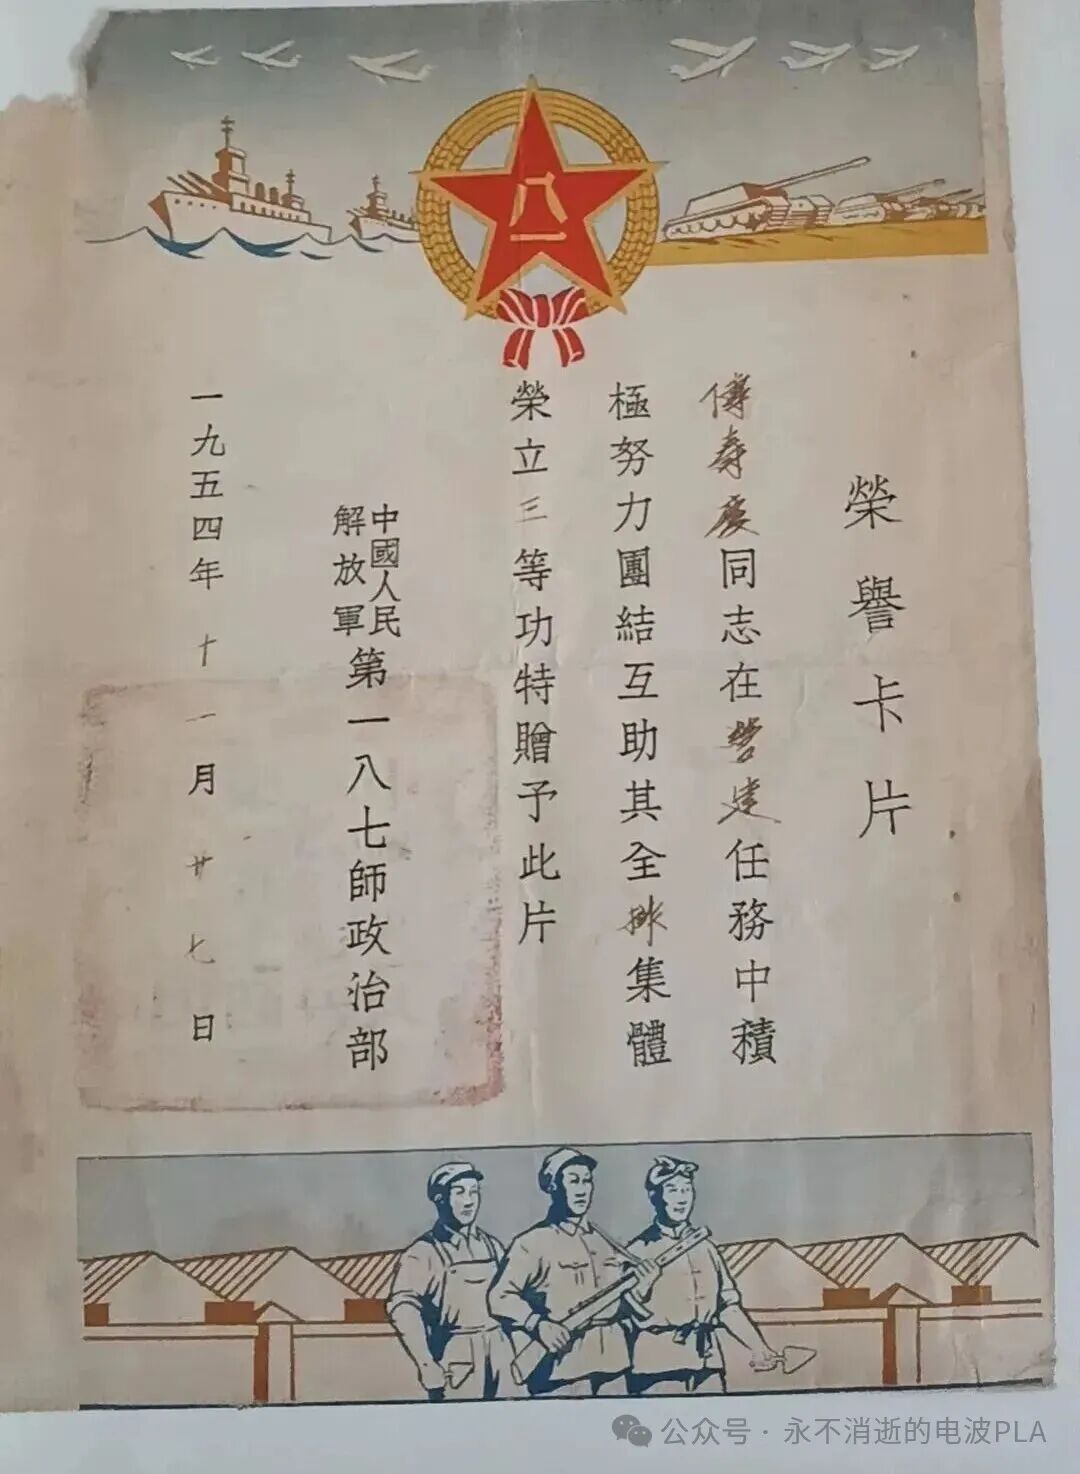 八一
榮譽卡片
傅壽慶同志在營建任務中積
極努力團結互助其全排集體
榮立三等功特贈予此片
中國人民
解放軍
第一八七師政治部
一九五四年十一月廿七日
公众号·永不消逝的电波PLA